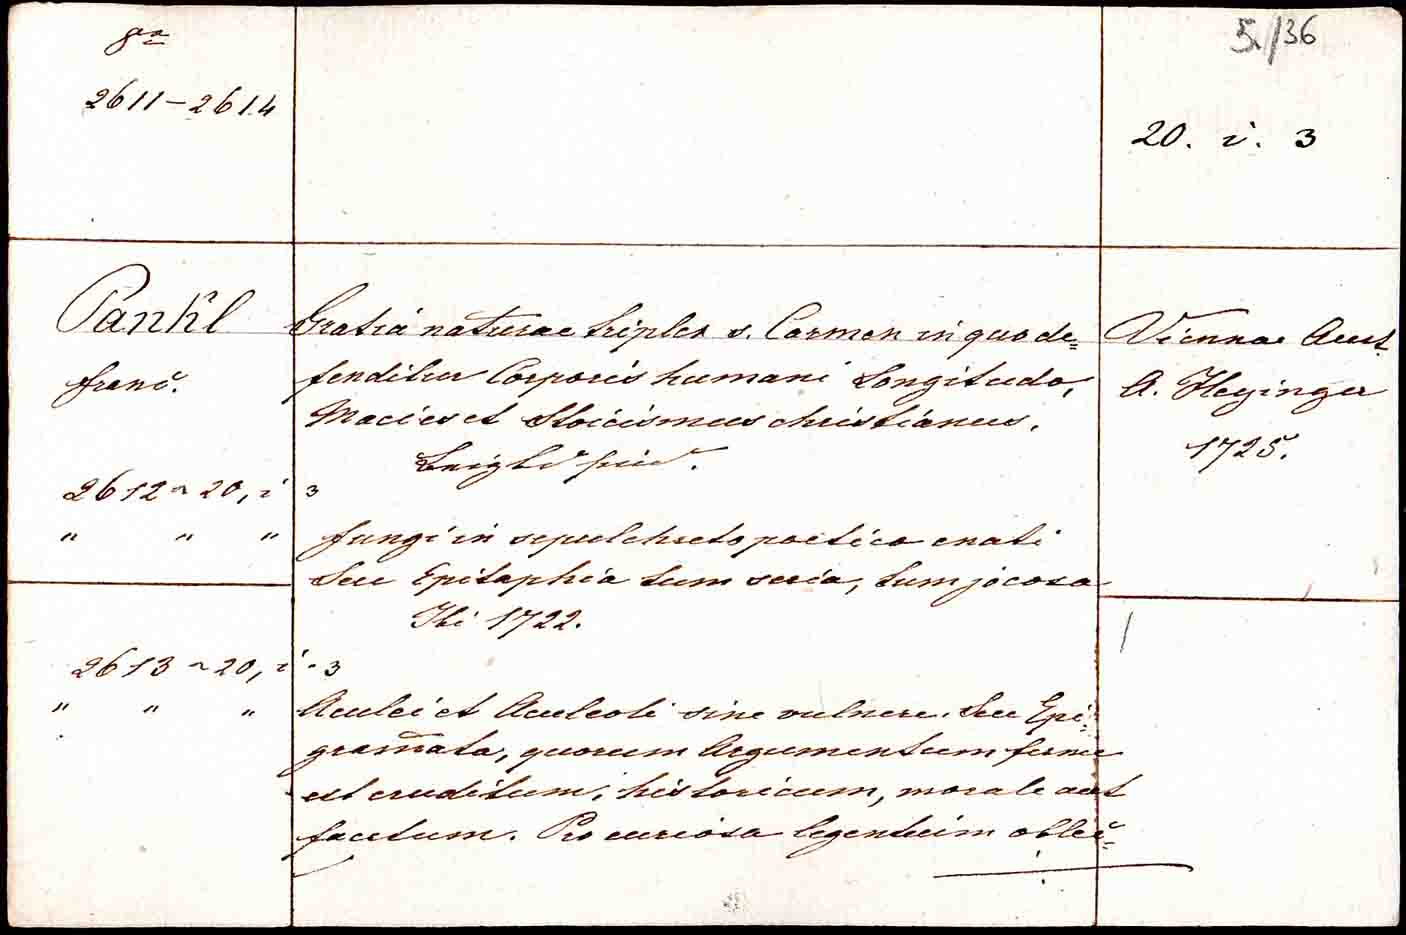 8va
2611–2614
5./36
20. i. 3
Pankl
Franc.
Gratia naturae triplex s. Carmen in quo de=
fenditur Corporis humani Longitudo,
Macies et Stoicismus christianus.
Viennae Aust.
A. Heyinger
1725.
2612 ~ 20, i 3
" " "
Fungi in sepulchreto poetico enati
Seu Epitaphia tum seria, tum jocosa
Ibi 1722.
2613 ~ 20, i. 3
" " "
Aculei et Aculeoli sine vulnere. Seu Epi=
grammata, quorum Argumentum ferme
est eruditum, historicum, morale aut
facetum. Pro curiosa legentium oblec=